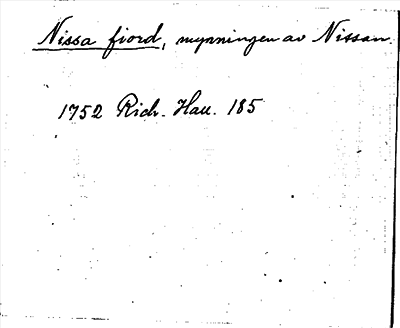 Nissa fiord, mynningen av Nissan.
1752 Rich. Hall. 185